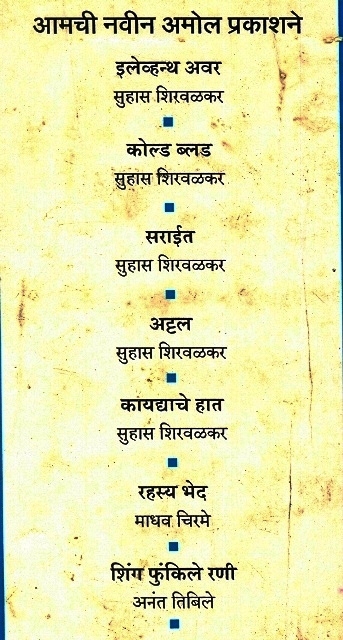 आमची नवीन अमोल प्रकाशने
इलेव्हन्थ अवर
सुहास शिरवळकर
कोल्ड ब्लड
सुहास शिरवळकर
सराईत
सुहास शिरवळकर
अट्टल
सुहास शिरवळकर
कायद्याचे हात
सुहास शिरवळकर
रहस्य भेद
माधव चिरमे
शिंग फुंकिले रणी
अनंत तिबिले